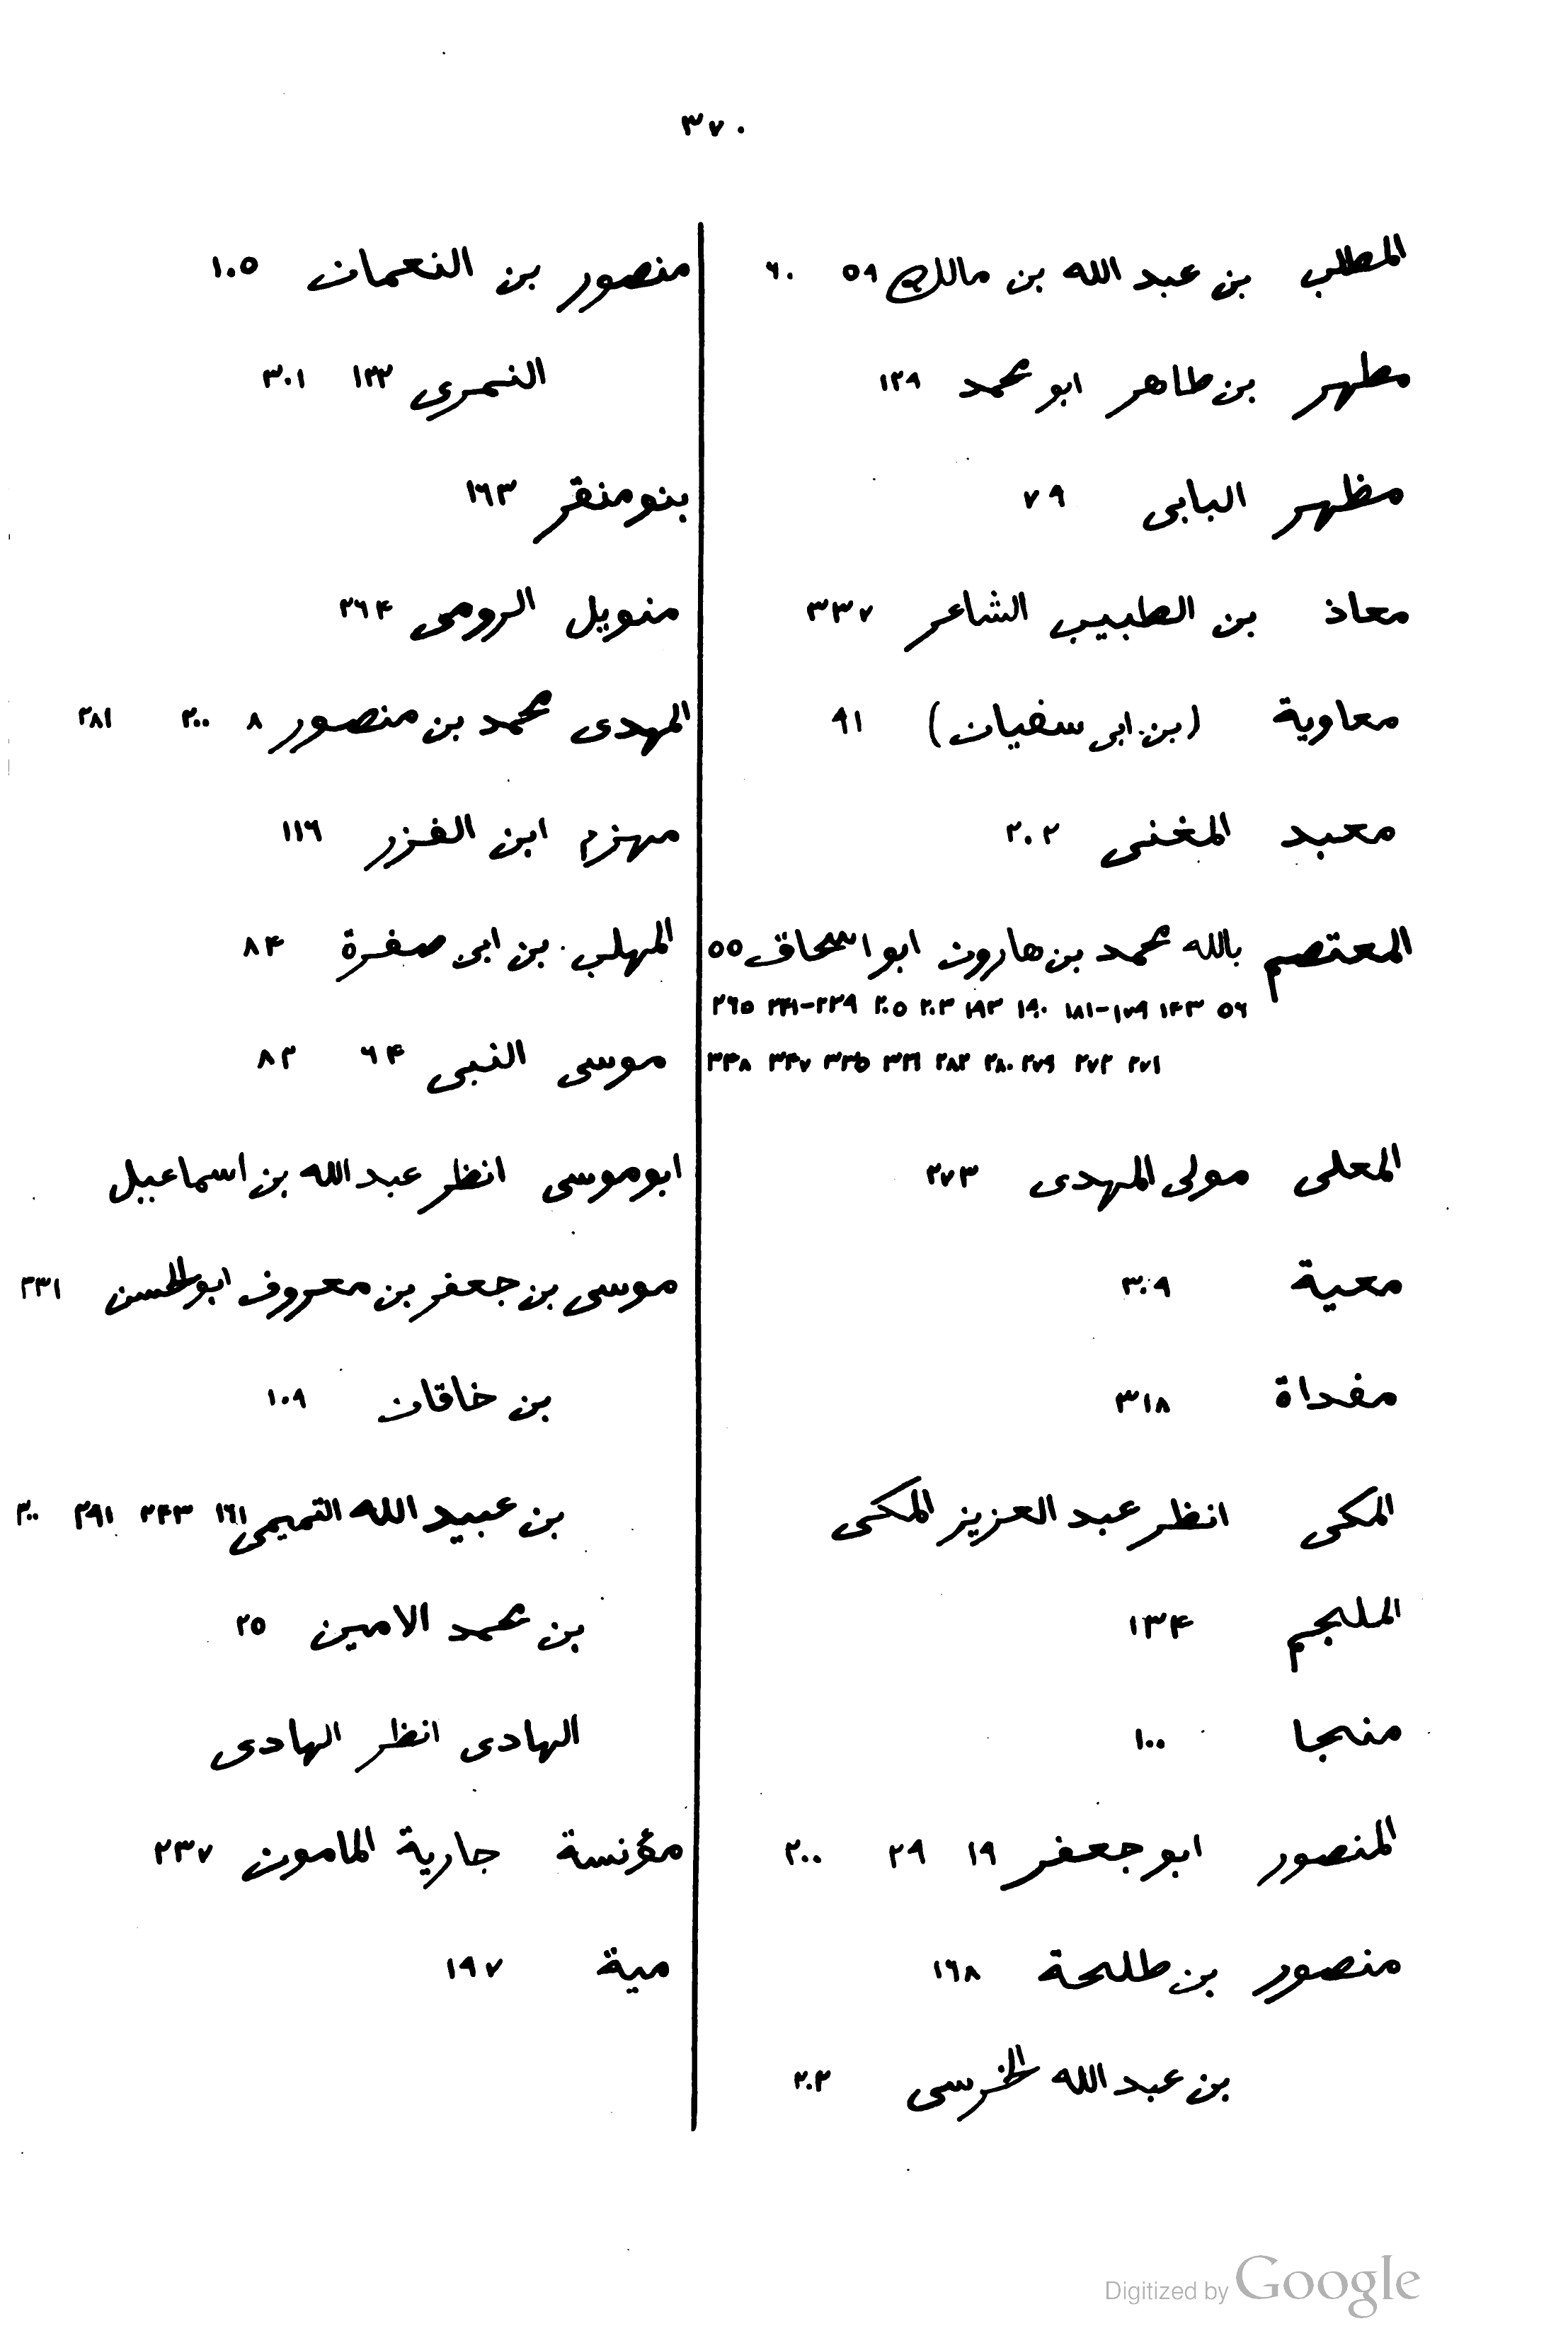 ٣٧٠
المطلب بن عبد الله بن مالك ٥٩ ٦٠
مطهر بن طاهر ابو محمد ١٢٩
مظهر البابى ٧٩
معاذ بن الطبيب الشاعر ٣٣٧
معاوية (بن ابى سفيان) ٩١
معبد المغنى ٢٠٢
المعتصم بالله محمد بن هارون ابو اسحاق ٥٥
٥٦ ١٤٣ ١٧٩-١٨١ ١٩٠ ١٩٣ ٢٠٣ ٢٠٥ ٢٣٩-٢٤١ ٢٦٥
٢٧١ ٢٧٢ ٢٧٩ ٢٨٠ ٢٨٢ ٣٢٦ ٣٣٥ ٣٤٧ ٣٣٨
المعلى مولى المهدى ٢٧٣
معية ٣٠٩
مفداة ٣١٨
المكى انظر عبد العزيز المكى
الملجم ١٣٤
منجا ١٠٠
المنصور ابو جعفر ١٩ ٢٩ ٢٠٠
منصور بن طلحة ١٦٨
بن عبد الله الخرسى ٢٠٢
منصور بن النعمان ١٠٥
النمرى ١٣٣ ٣٠١
بنو منقر ١٦٣
منويل الرومى ٢٦٤
المهدى محمد بن منصور ٨ ٢٠٠ ٢٨١
مهزم ابن الفزر ١١٦
المهلب بن ابى صفرة ٨٤
موسى النبى ٦٤ ٨٢
ابو موسى انظر عبد الله بن اسماعيل
موسى بن جعفر بن معروف ابو الحسن ٢٣١
بن خاقان ١٠٩
بن عبيد الله التميمى ١٦١ ٢٤٣ ٢٩١ ٣٠٠
بن محمد الامين ٢٥
الهادى انظر الهادى
مؤنسة جارية المامون ٢٣٧
مية ١٩٧
Digitized by Google